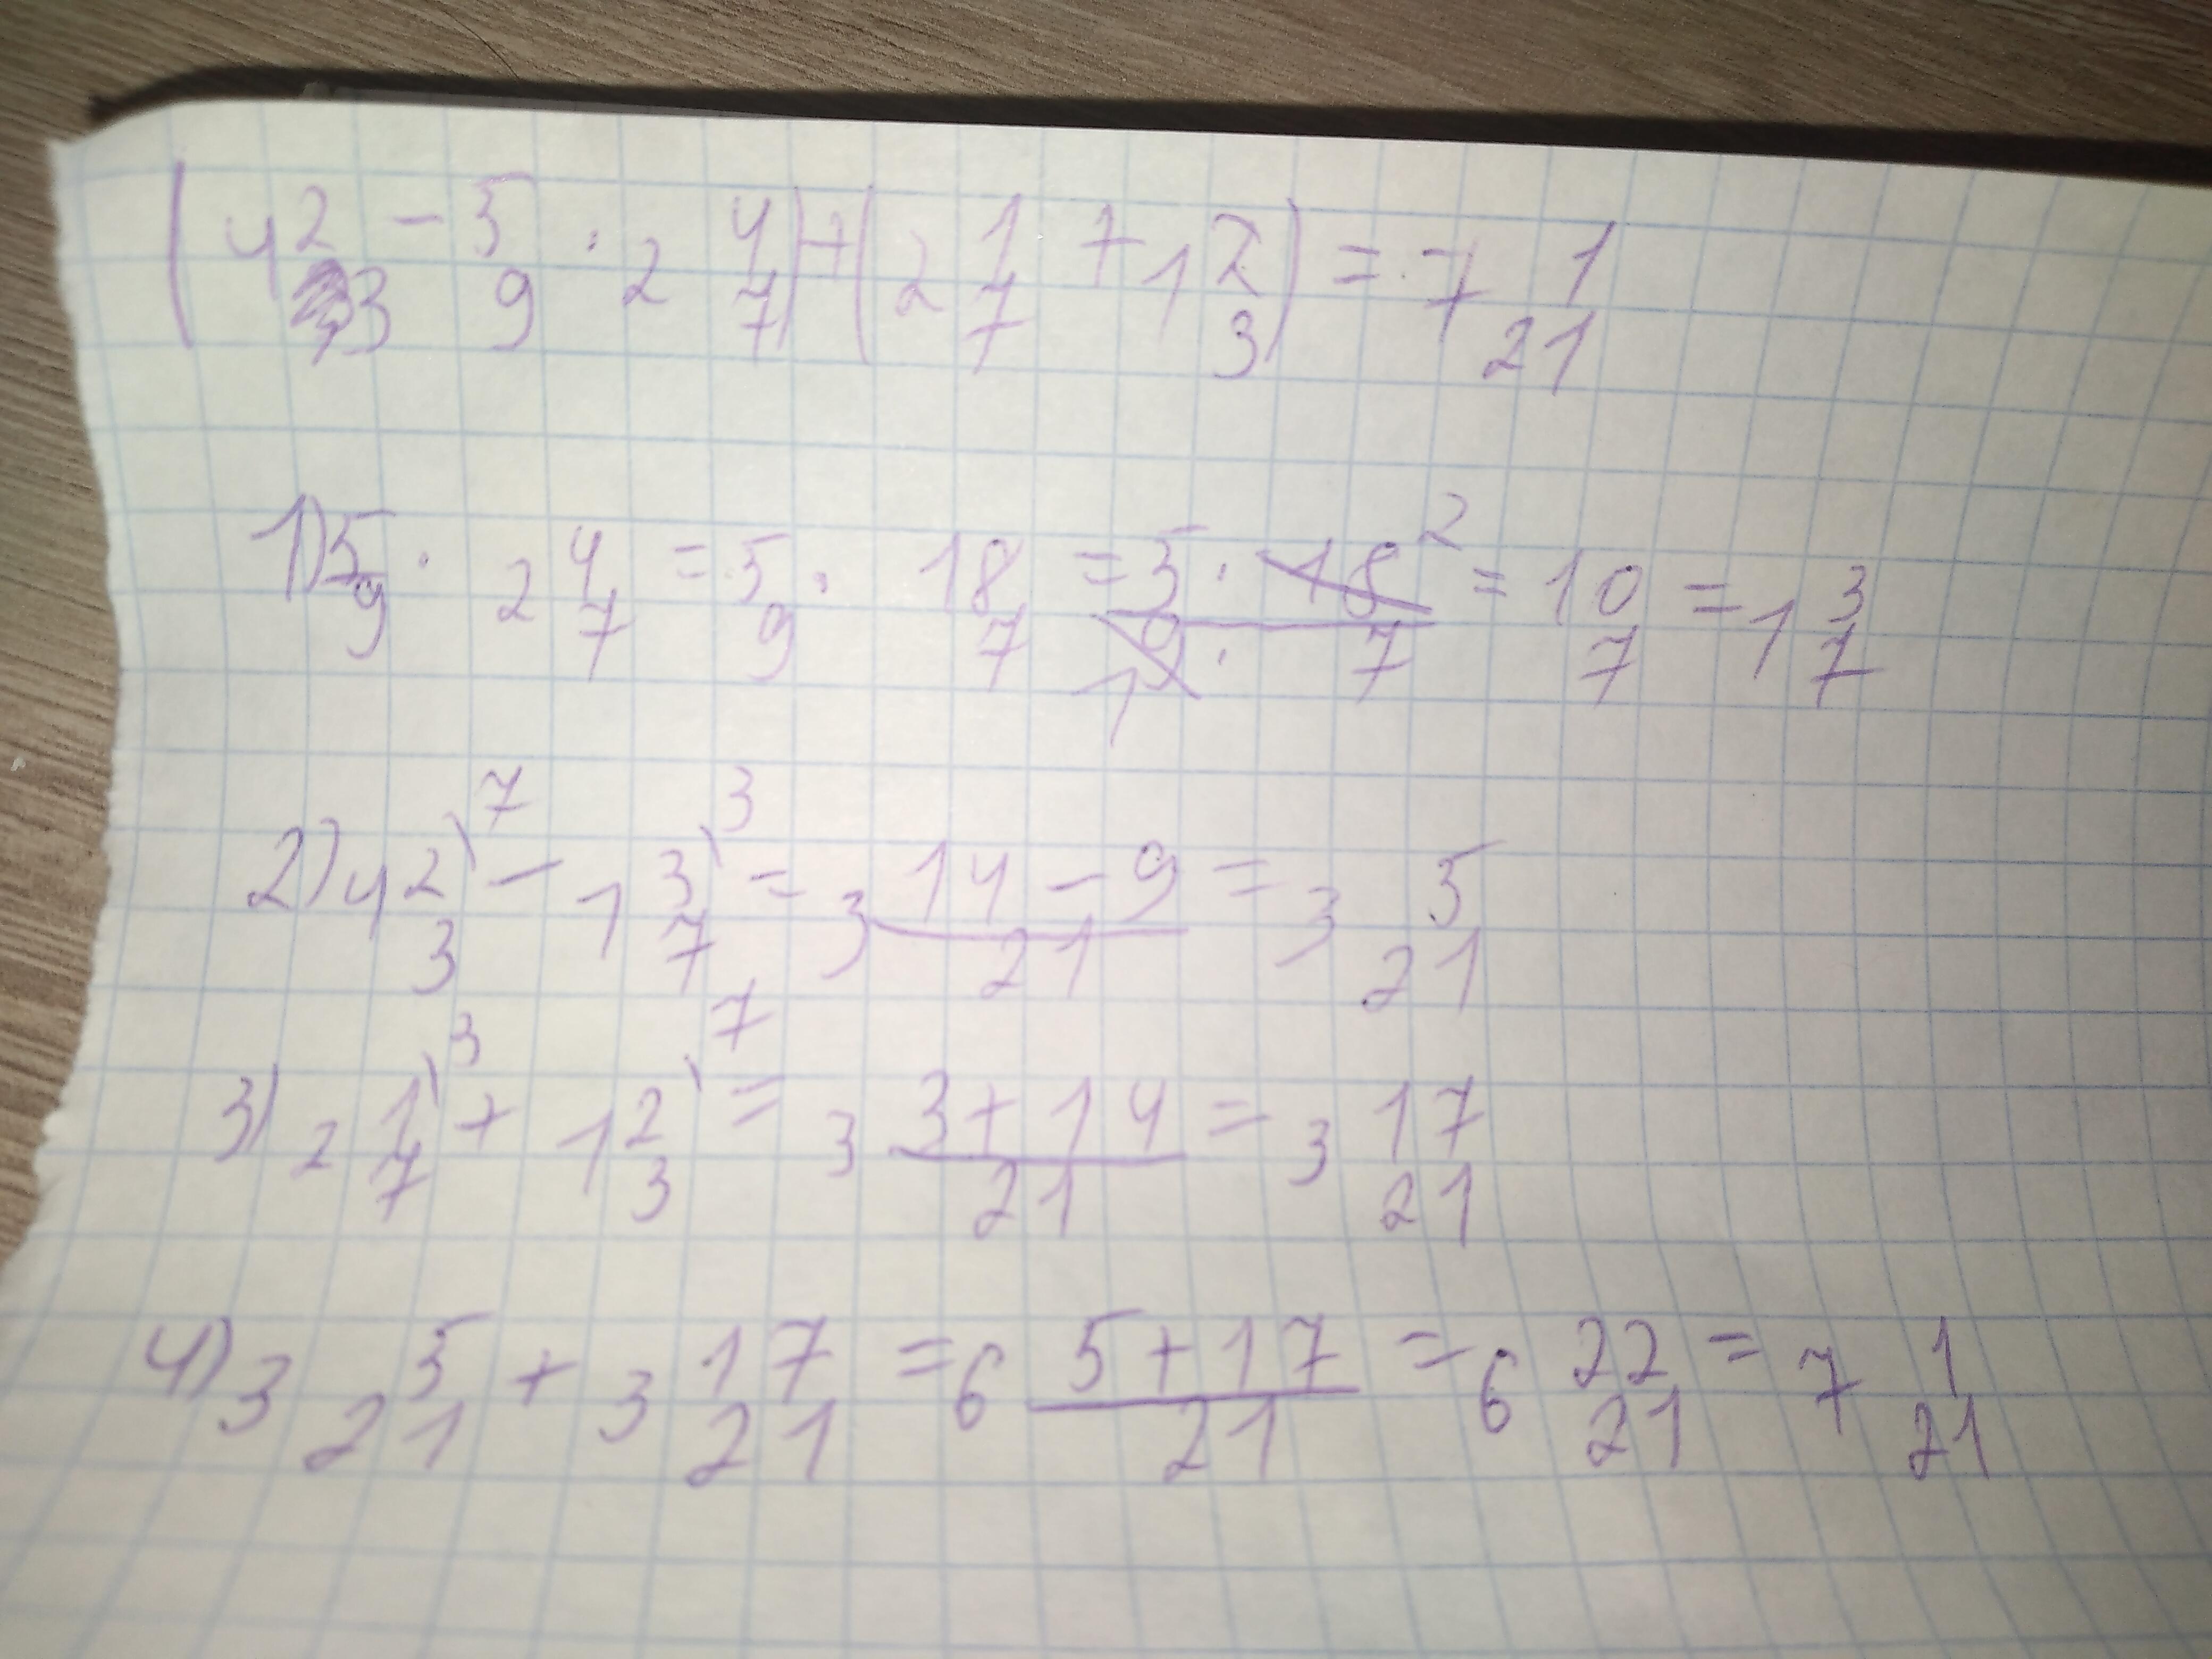 (4 2/3 - 5/9 · 2 4/7) + (2 1/7 + 1 2/3) = 7 1/21
1) 5/9 · 2 4/7 = 5/9 · 18/7 = 5 · 18² / 9 · 7 1 = 10/7 = 1 3/7
2) 4 2/3 \7 - 1 3/7 \3 = 3 14 - 9 / 21 = 3 5/21
3) 2 1/7 \3 + 1 2/3 \7 = 3 3 + 14 / 21 = 3 17/21
4) 3 5/21 + 3 17/21 = 6 5 + 17 / 21 = 6 22/21 = 7 1/21